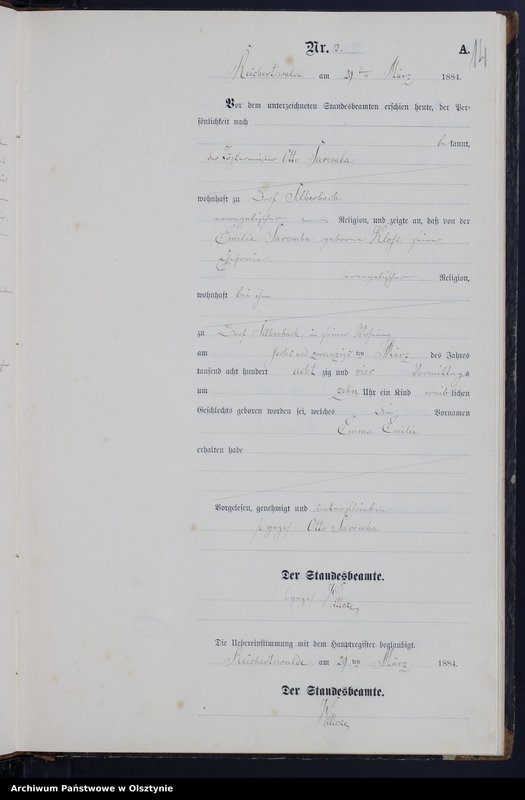 Nr. 13.
A. 14
Reichertswalde am 29ten März 1884.
Vor dem unterzeichneten Standesbeamten erschien heute, der Per-
sönlichkeit nach
be kannt,
der Otto Saremba
wohnhaft zu Dorf Silberbach
evangelischer Religion, und zeigte an, daß von der
Emilie Saremba geborene Kloß, seiner
Ehefrau
evangelischer Religion,
wohnhaft bei ihm
zu Dorf Silberbach, in seiner Wohnung
am sechs und zwanzigsten März des Jahres
tausend acht hundert achtzig und vier Vormittags
um zehn Uhr ein Kind weiblichen
Geschlechts geboren worden sei, welches die Vornamen
Emma Emilie
erhalten habe
Vorgelesen, genehmigt und unterschrieben
gez. Otto Saremba
Der Standesbeamte.
gez.
Die Uebereinstimmung mit dem Hauptregister beglaubigt.
Reichertswalde am 29ten März 1884.
Der Standesbeamte.
Archiwum Państwowe w Olsztynie